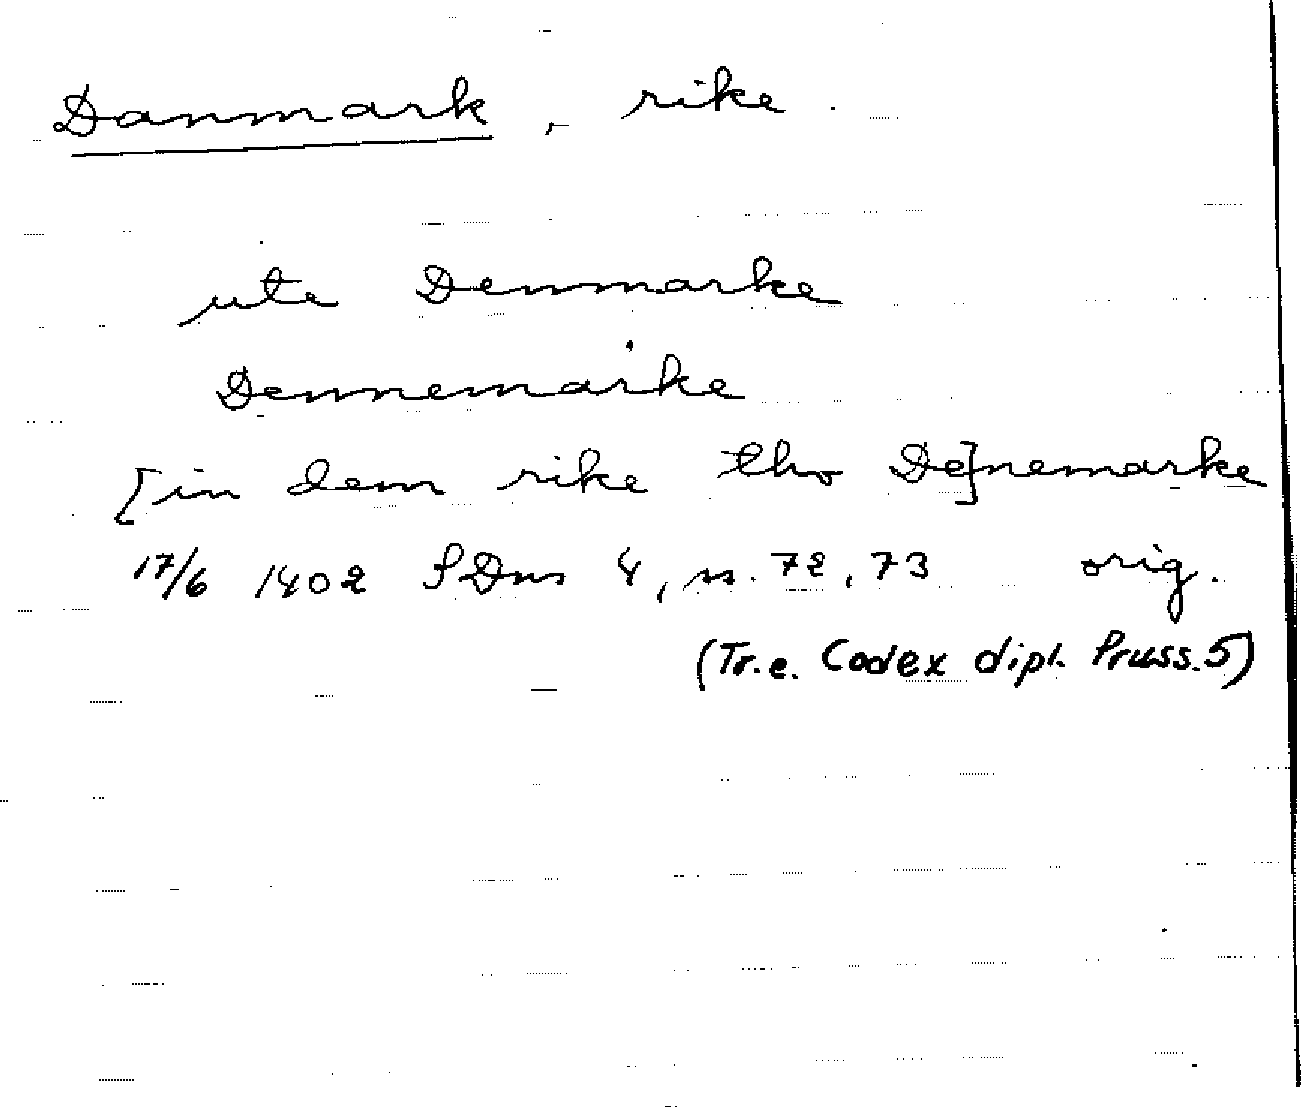 Danmark, rike.
ute Denmarke
Dennemarke
[in dem rike tho De]nemarke
17/6 1402 SDns 4, n. 72, 73 orig.
(Tr. e. Codex dipl. Pruss. 5)